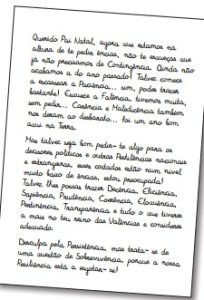 Querido Pai Natal, agora que estamos na
altura de te pedir ências, não te esqueças que
já não precisamos de Contingência. Ainda não
acabámos a do ano passado! Talvez comece
a escassear a Paciência... sim, podes trazer
bastante! Esquece a Falência, tivemos muita,
sem pedir... Carência e Maledicência também
nos deram ao desbarato... foi um ano bom
aqui na Terra.
Mas talvez seja bom pedir-te algo para os
decisores políticos e outras Pestilências nacionais
e estrangeiras, esses coitados estão num nível
muito baixo de ências, estou preocupada!
Talvez lhes possas trazer Decência, Eficiência,
Sapiência, Prudência, Coerência, Eloquência,
Pertinência, Transparência e tudo o que tiveres
a mais no teu reino das Valências e consideres
adequado.
Desculpa pela Persistência, mas trata-se de
uma questão de Sobrevivência, porque a nossa
Resiliência está a esgotar-se!